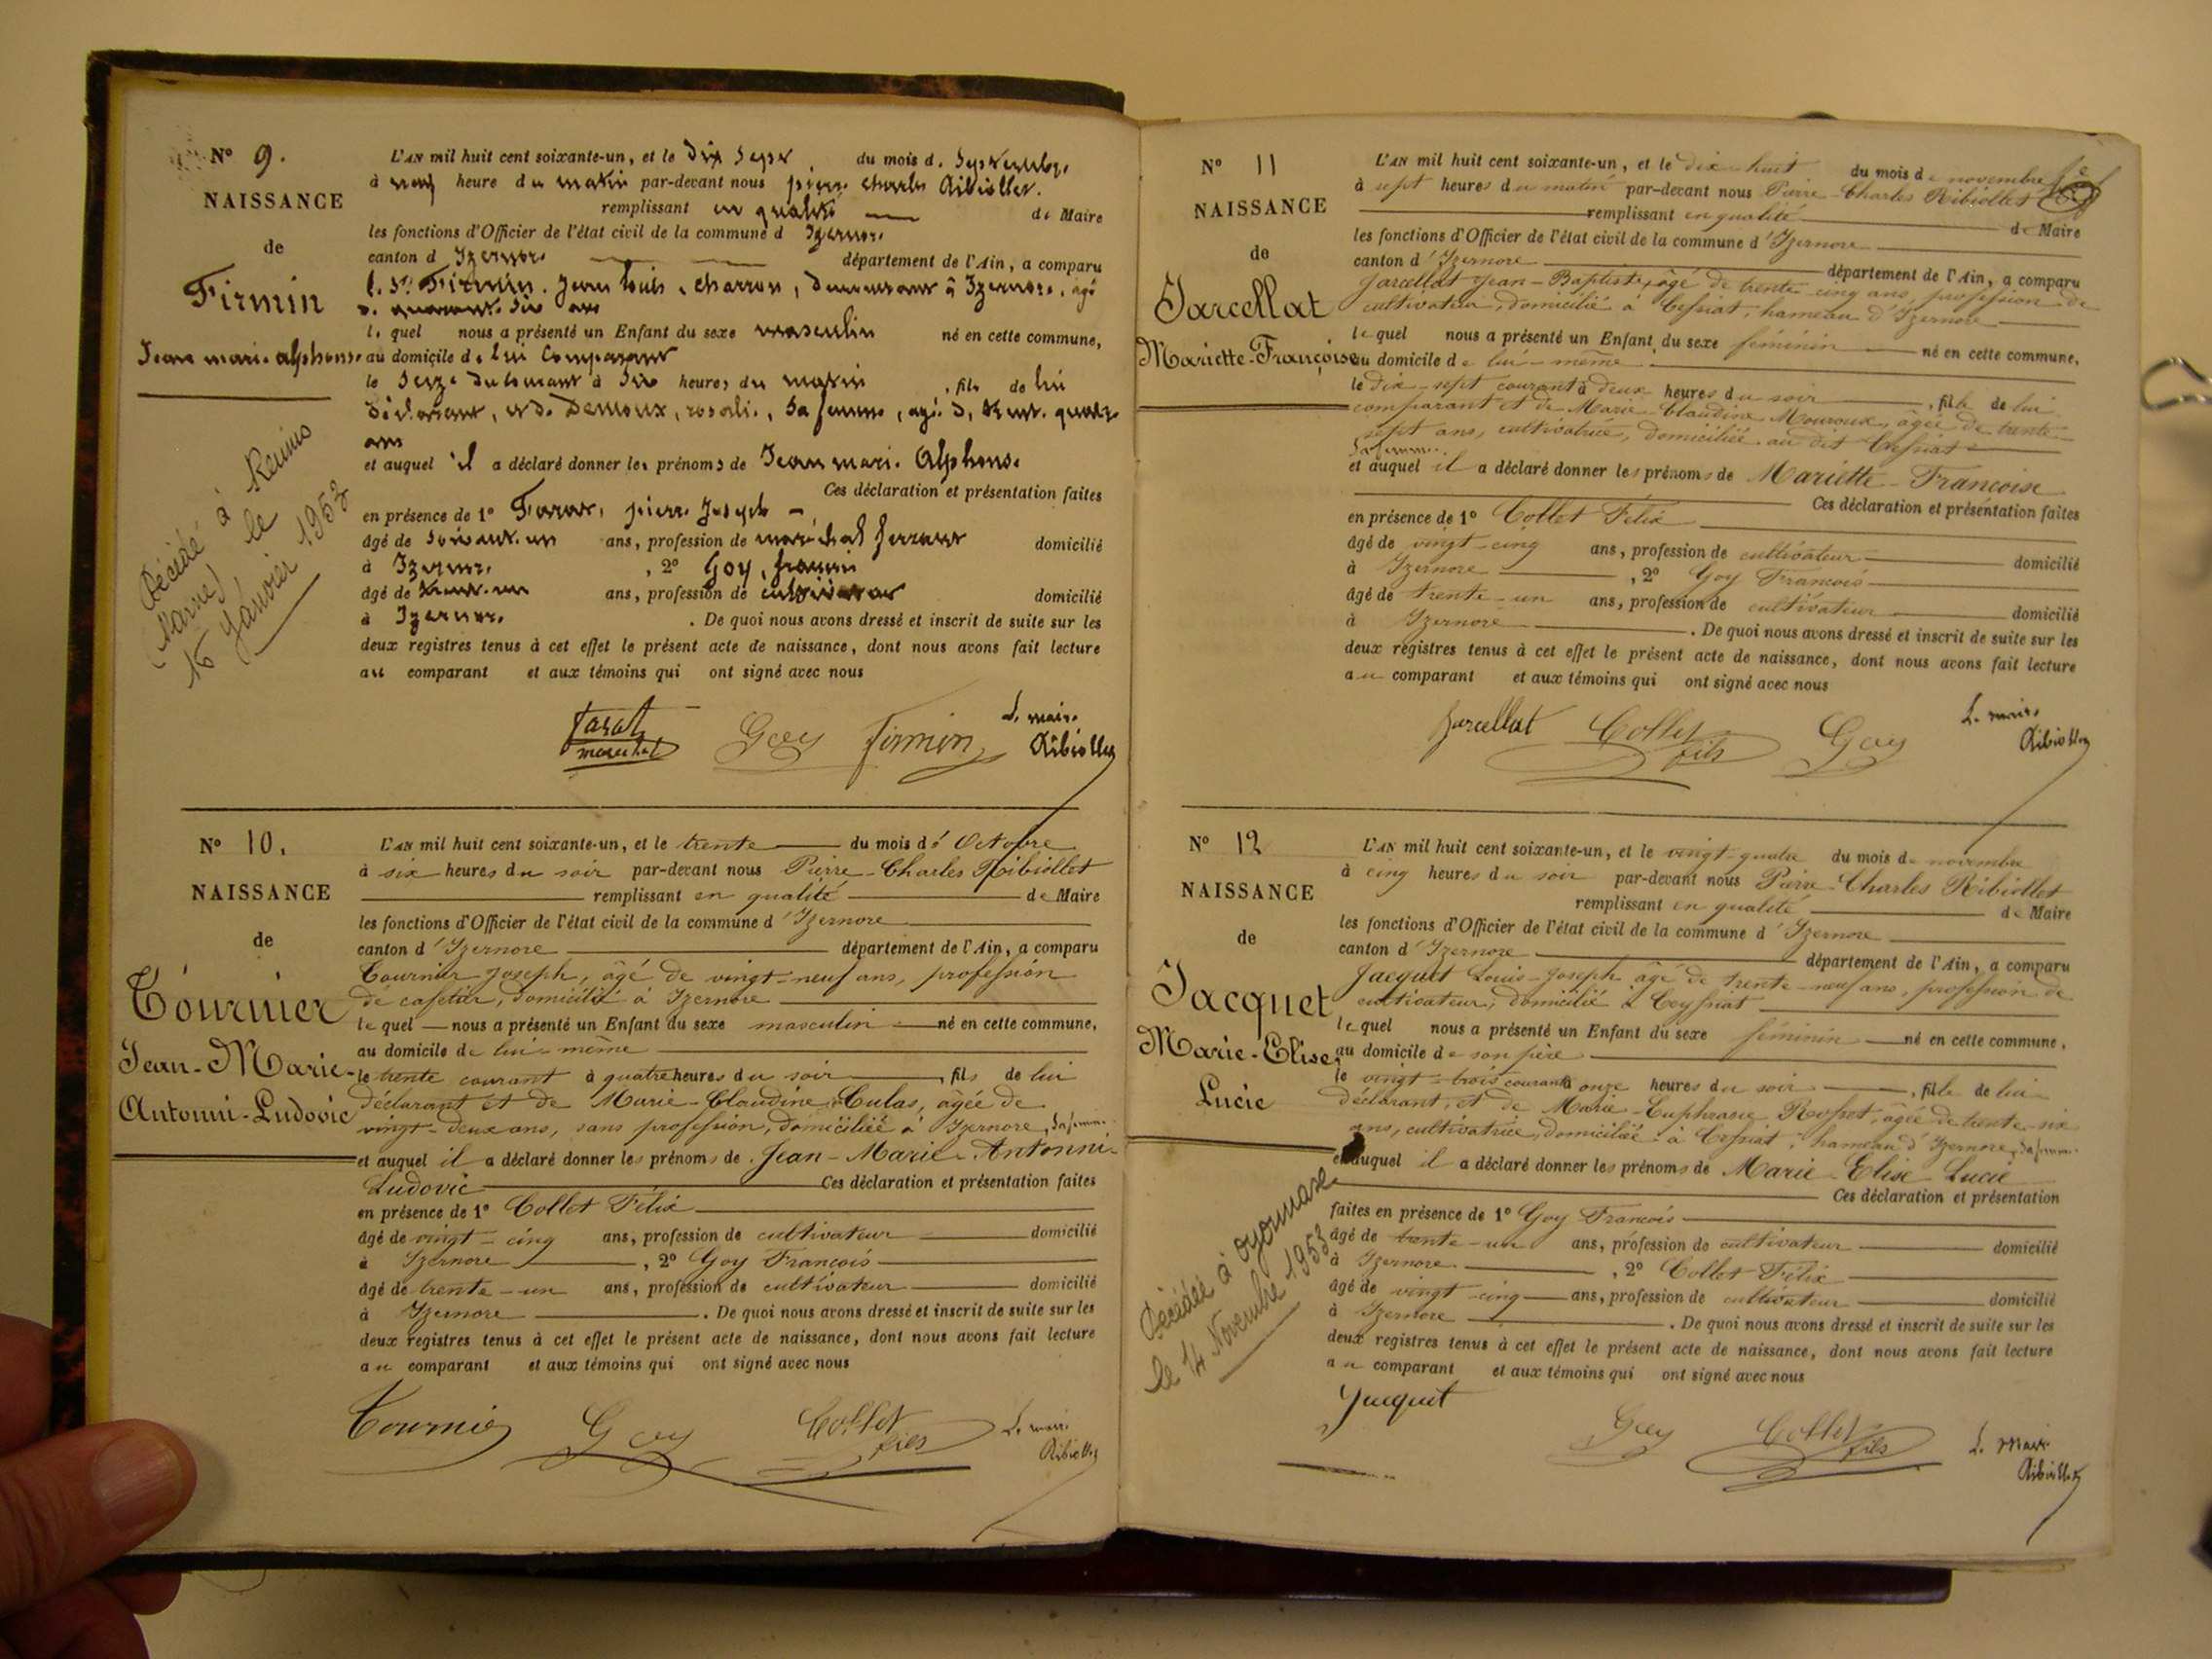 N° 9.
NAISSANCE
de
Firmin
Jean marie alphonse
Décédé à Reims
(Marne) le
16 Janvier 1953
L'AN mil huit cent soixante-un, et le dix sept du mois de Septembre
à neuf heure du matin par-devant nous pierre charles Ribiollet.
remplissant en qualité de Maire
les fonctions d'Officier de l'état civil de la commune d Izernore
canton d Izernore département de l'Ain, a comparu
le Sr. Firmin. Jean Louis, charron, demeurant à Izernore, agé
de quarante six ans
le quel nous a présenté un Enfant du sexe masculin né en cette commune,
au domicile de lui Comparant
le seize du courant à six heures du matin , fils de lui
déclarant, et de Demoux, rosalie, sa femme, agée de trente quatre
ans
et auquel il a déclaré donner les prénoms de Jean marie Alphonse
Ces déclaration et présentation faites
en présence de 1° pierre Joseph
âgé de soixante un ans, profession de maréchal ferrant domicilié
à Izernore , 2° Goy, françois
âgé de trente un ans, profession de cultivateur domicilié
à Izernore . De quoi nous avons dressé et inscrit de suite sur les
deux registres tenus à cet effet le présent acte de naissance, dont nous avons fait lecture
au comparant et aux témoins qui ont signé avec nous
Goy Firmin Le maire
Ribiollet
N° 10.
NAISSANCE
de
Tournier
Jean-Marie-
Antonni-Ludovic
L'AN mil huit cent soixante-un, et le trente du mois d'Octobre
à six heures du soir par-devant nous Pierre-Charles Ribiollet
remplissant en qualité de Maire
les fonctions d'Officier de l'état civil de la commune d'Izernore
canton d'Izernore département de l'Ain, a comparu
Tournier Joseph, âgé de vingt-neuf ans, profession
de cafetier, domicilié à Izernore
le quel nous a présenté un Enfant du sexe masculin né en cette commune,
au domicile de lui-même
le trente courant à quatre heures du soir , fils de lui
déclarant et de Marie-Claudine Culas, âgée de
vingt-deux ans, sans profession, domiciliée à Izernore, sa femme
et auquel il a déclaré donner les prénoms de Jean-Marie-Antonni-
Ludovic Ces déclaration et présentation faites
en présence de 1° Collet Félix
âgé de vingt-cinq ans, profession de cultivateur domicilié
à Izernore , 2° Goy François
âgé de trente-un ans, profession de cultivateur domicilié
à Izernore . De quoi nous avons dressé et inscrit de suite sur les
deux registres tenus à cet effet le présent acte de naissance, dont nous avons fait lecture
au comparant et aux témoins qui ont signé avec nous
Tournier Goy Collet fils Le maire
Ribiollet
N° 11
NAISSANCE
de
Jarcellat
Mariette-Françoise
L'AN mil huit cent soixante-un, et le dix-huit du mois de novembre
à sept heures du matin par-devant nous Pierre-Charles Ribiollet
remplissant en qualité de Maire
les fonctions d'Officier de l'état civil de la commune d'Izernore
canton d'Izernore département de l'Ain, a comparu
Jarcellat Jean-Baptiste, âgé de trente-cinq ans, profession de
cultivateur, domicilié à Cessiat, hameau d'Izernore
le quel nous a présenté un Enfant du sexe féminin né en cette commune,
au domicile de lui-même
le dix-sept courant à deux heures du soir , fille de lui
comparant et de Marie-Claudine Mouroux, âgée de trente
sept ans, cultivatrice, domiciliée au dit Cessiat
sa femme
et auquel il a déclaré donner les prénoms de Mariette-Françoise
Ces déclaration et présentation faites
en présence de 1° Collet Félix
âgé de vingt-cinq ans, profession de cultivateur domicilié
à Izernore , 2° Goy François
âgé de trente-un ans, profession de cultivateur domicilié
à Izernore . De quoi nous avons dressé et inscrit de suite sur les
deux registres tenus à cet effet le présent acte de naissance, dont nous avons fait lecture
au comparant et aux témoins qui ont signé avec nous
Jarcellat Collet fils Goy Le maire
Ribiollet
N° 12
NAISSANCE
de
Jacquet
Marie-Elise
Lucie
Décédée à Oyonnax
le 14 Novembre 1953
L'AN mil huit cent soixante-un, et le vingt-quatre du mois de novembre
à cinq heures du soir par-devant nous Pierre-Charles Ribiollet
remplissant en qualité de Maire
les fonctions d'Officier de l'état civil de la commune d'Izernore
canton d'Izernore département de l'Ain, a comparu
Jacquet Louis-Joseph âgé de trente-neuf ans, profession de
cultivateur, domicilié à Ceyssiat
le quel nous a présenté un Enfant du sexe féminin né en cette commune,
au domicile de son père
le vingt-trois courant à onze heures du soir , fille de lui
déclarant, et de Marie-Euphrasie Rosset, âgée de trente-six
ans, cultivatrice, domiciliée à Cessiat, hameau d'Izernore, sa femme
et auquel il a déclaré donner les prénoms de Marie Elise Lucie
Ces déclaration et présentation
faites en présence de 1° Goy François
âgé de trente-un ans, profession de cultivateur domicilié
à Izernore , 2° Collet Félix
âgé de vingt-cinq ans, profession de cultivateur domicilié
à Izernore . De quoi nous avons dressé et inscrit de suite sur les
deux registres tenus à cet effet le présent acte de naissance, dont nous avons fait lecture
au comparant et aux témoins qui ont signé avec nous
Jacquet
Goy Collet fils Le Maire
Ribiollet